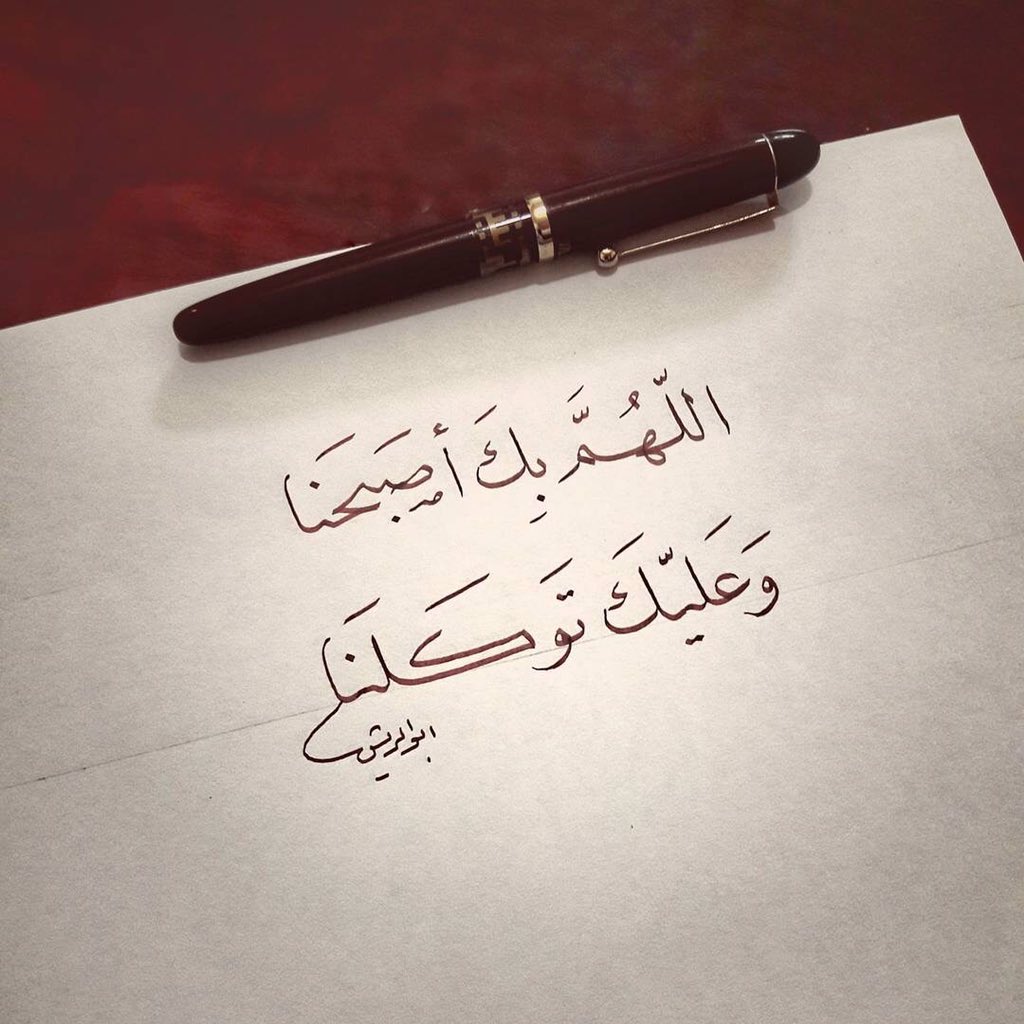 اللّهُمَّ بِكَ أصبَحنَا
وَعَليّكَ تَوكَلنَا
ابوالريش